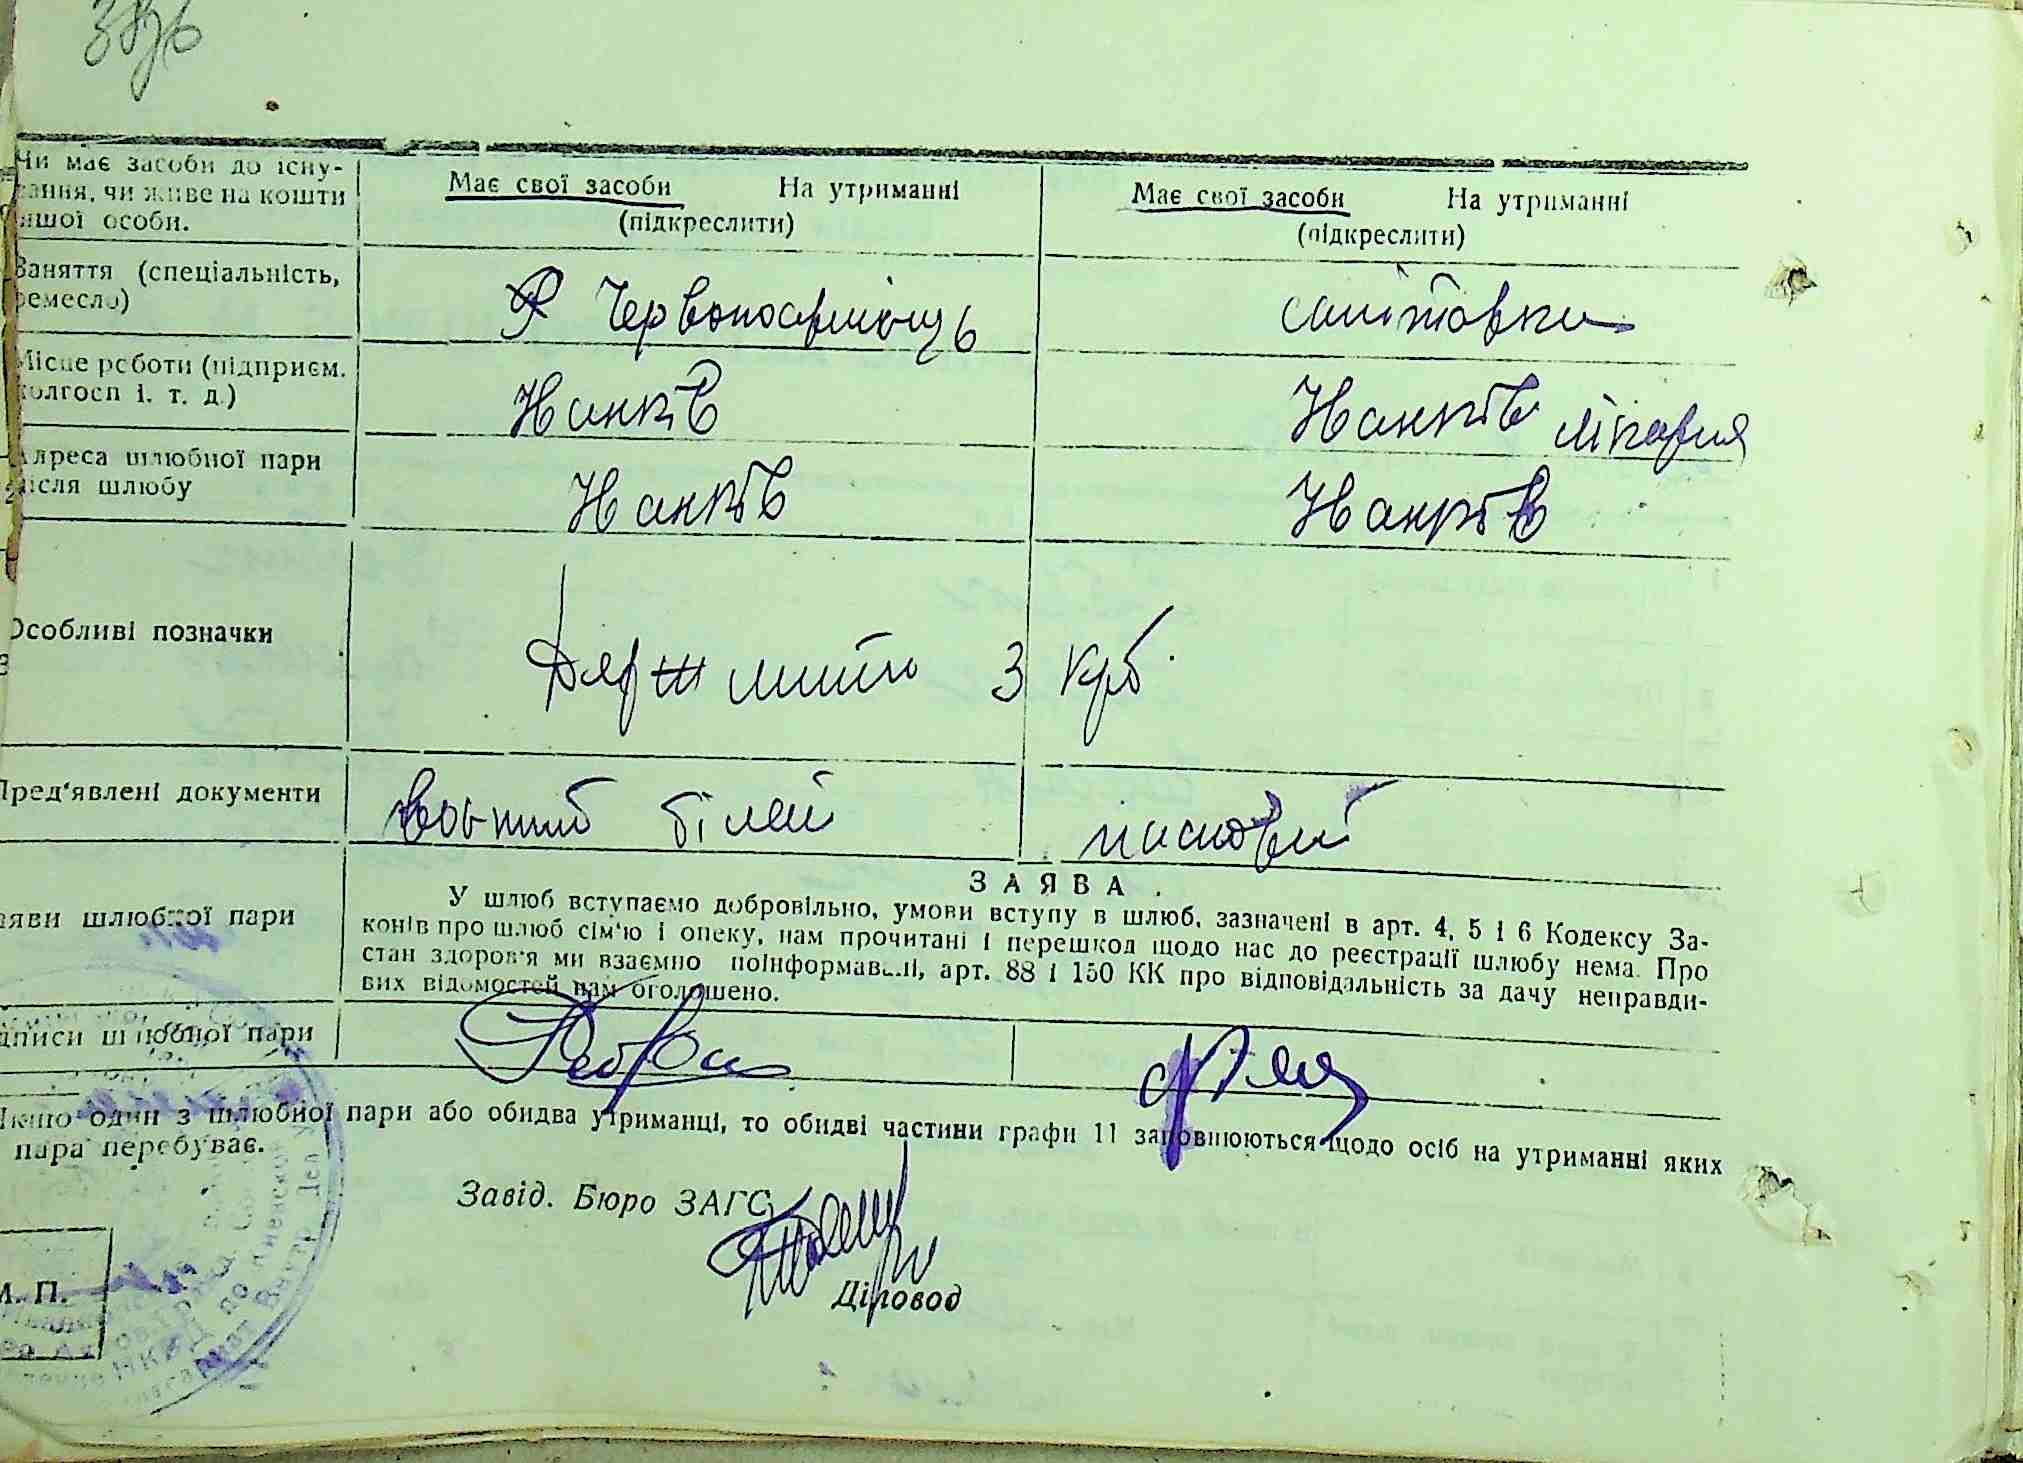 Чи має засоби до існу-
вання, чи живе на кошти
іншої особи.
Має свої засоби На утриманні
(підкреслити)
Має свої засоби На утриманні
(підкреслити)
Заняття (спеціальність,
ремесло)
Червоноармієць
санітарка
Місце роботи (підприєм.
колгосп і. т. д.)
Іванків
Іванків лікарня
Адреса шлюбної пари
після шлюбу
Іванків
Іванків
Особливі позначки
Держ мито 3 крб.
Пред'явлені документи
воєнний білет
паспорт
ЗАЯВА.
Заяви шлюбної пари
У шлюб вступаємо добровільно, умови вступу в шлюб, зазначені в арт. 4, 5 і 6 Кодексу За-
конів про шлюб сім'ю і опеку, нам прочитані і перешкод щодо нас до реєстрації шлюбу нема. Про
стан здоров'я ми взаємно поінформавані, арт. 88 і 150 КК про відповідальність за дачу неправди-
вих відомостей нам оголошено.
Підписи шлюбної пари
Якщо один з шлюбної пари або обидва утриманці, то обидві частини графи 11 заповнюються щодо осіб на утриманні яких
пара перебуває.
Завід. Бюро ЗАГС
М. П.
Діловод